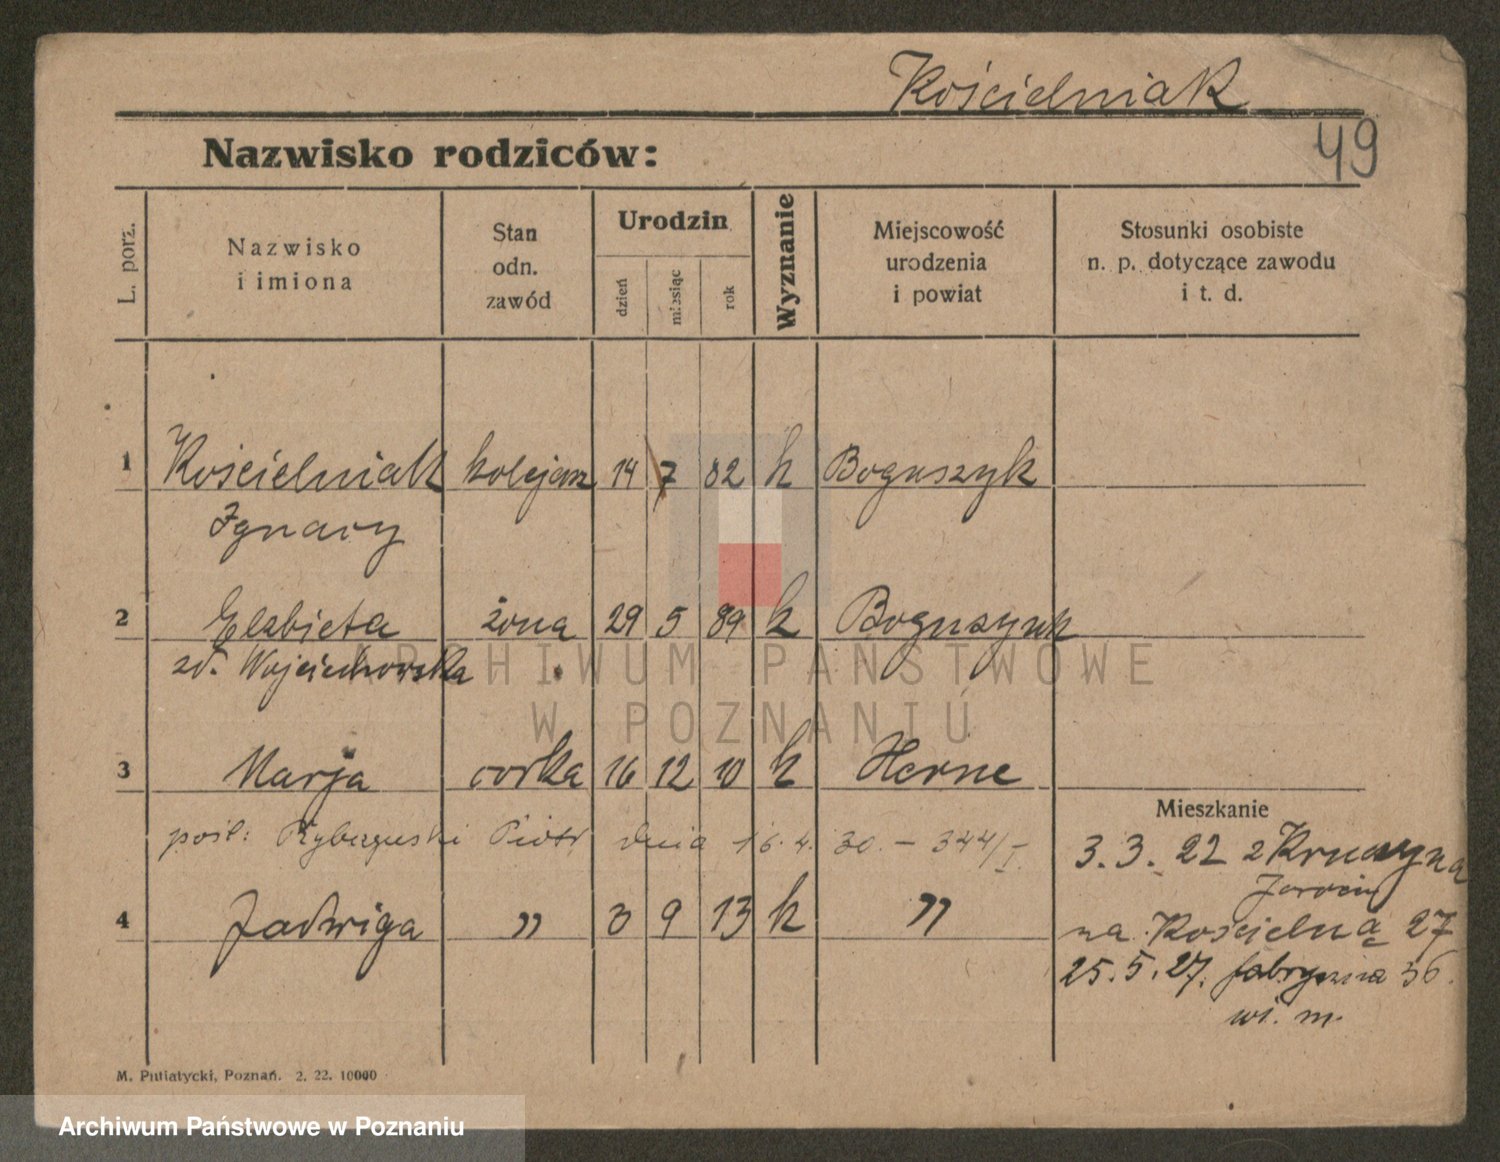 Kościelniak
49
Nazwisko rodziców:
L. porz.
Nazwisko
i imiona
Stan
odn.
zawód
Urodzin
dzień
miesiąc
rok
Wyznanie
Miejscowość
urodzenia
i powiat
Stosunki osobiste
n. p. dotyczące zawodu
i t. d.
1 Kościelniak kolejarz 14 7 82 k Boguszyk
Ignacy
2 Elżbieta żona 29 5 89 k Boguszynk
zd. Wojciechowska
3 Marja corka 16 12 10 k Herne
pośl: Piotr dnia 16.4. 30. – 344/I.
4 Jadwiga " 3 9 13 k "
Mieszkanie
3.3.22 z
Jarocin
na Kościelną 27
25.5.27. fabryczna 36.
wi. m.
M. Putiatycki, Poznań. 2. 22. 10000
ARCHIWUM PAŃSTWOWE
W POZNANIU
Archiwum Państwowe w Poznaniu